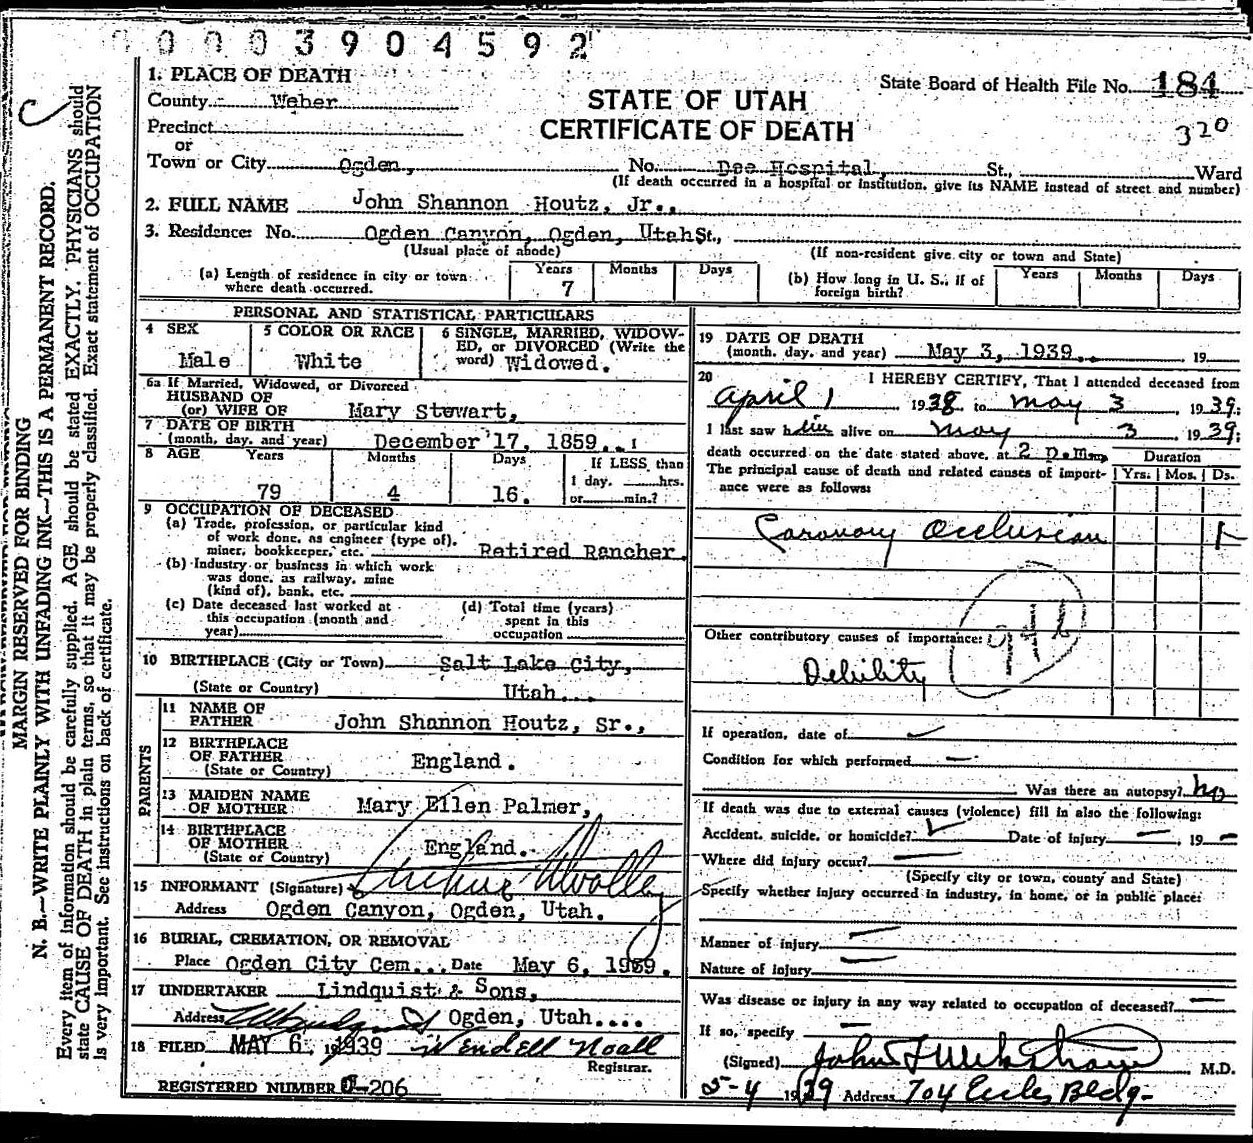 00003904592
1. PLACE OF DEATH
County Weber
Precinct
or
Town or City Ogden, No. Dee Hospital, St., Ward
(If death occurred in a hospital or institution, give its NAME instead of street and number)
STATE OF UTAH
CERTIFICATE OF DEATH
State Board of Health File No. 184
320
2. FULL NAME John Shannon Houtz, Jr.,
3. Residence: No. Ogden Canyon, Ogden, Utah St.,
(Usual place of abode) (If non-resident give city or town and State)
(a) Length of residence in city or town where death occurred. Years 7 Months Days
(b) How long in U. S., if of foreign birth? Years Months Days
PERSONAL AND STATISTICAL PARTICULARS
4 SEX Male
5 COLOR OR RACE White
6 SINGLE, MARRIED, WIDOWED, or DIVORCED (Write the word) Widowed.
6a If Married, Widowed, or Divorced
HUSBAND OF
(or) WIFE OF Mary Stewart,
7 DATE OF BIRTH
(month, day, and year) December 17, 1859..
8 AGE Years 79 Months 4 Days 16. If LESS than 1 day, hrs. or min.?
9 OCCUPATION OF DECEASED
(a) Trade, profession, or particular kind
of work done, as engineer (type of),
miner, bookkeeper, etc. Retired Rancher.
(b) Industry or business in which work
was done, as railway, mine
(kind of), bank, etc.
(c) Date deceased last worked at
this occupation (month and
year)
(d) Total time (years)
spent in this
occupation
10 BIRTHPLACE (City or Town) Salt Lake City,
(State or Country) Utah...
PARENTS
11 NAME OF
FATHER John Shannon Houtz, Sr.,
12 BIRTHPLACE
OF FATHER England.
(State or Country)
13 MAIDEN NAME
OF MOTHER Mary Ellen Palmer,
14 BIRTHPLACE
OF MOTHER England.
(State or Country)
15 INFORMANT (Signature)
Address Ogden Canyon, Ogden, Utah.
16 BURIAL, CREMATION, OR REMOVAL
Place Ogden City Cem... Date May 6, 1939.
17 UNDERTAKER Lindquist & Sons,
Address Ogden, Utah....
18 FILED MAY 6, 1939 Wendell Noall
Registrar.
REGISTERED NUMBER -206
19 DATE OF DEATH
(month, day, and year) May 3, 1939. 19
20 I HEREBY CERTIFY, That I attended deceased from
April 1 1938 to May 3 1939;
I last saw him alive on May 3 1939;
death occurred on the date stated above, at 2 m.
Duration
The principal cause of death and related causes of importance were as follows: Yrs. Mos. Ds.
Coronary Occlusion 1
Other contributory causes of importance:
Debility
If operation, date of
Condition for which performed —
Was there an autopsy? No
If death was due to external causes (violence) fill in also the following:
Accident, suicide, or homicide? Date of injury — , 19 —
Where did injury occur? —
(Specify city or town, county and State)
Specify whether injury occurred in industry, in home, or in public place:
Manner of injury —
Nature of injury —
Was disease or injury in any way related to occupation of deceased? —
If so, specify —
(Signed) John M.D.
5-4 1939 Address 704 Eccles Bldg-
MARGIN RESERVED FOR BINDING
N. B.—WRITE PLAINLY WITH UNFADING INK—THIS IS A PERMANENT RECORD.
Every item of information should be carefully supplied. AGE should be stated EXACTLY. PHYSICIANS should
state CAUSE OF DEATH in plain terms, so that it may be properly classified. Exact statement of OCCUPATION
is very important. See instructions on back of certificate.